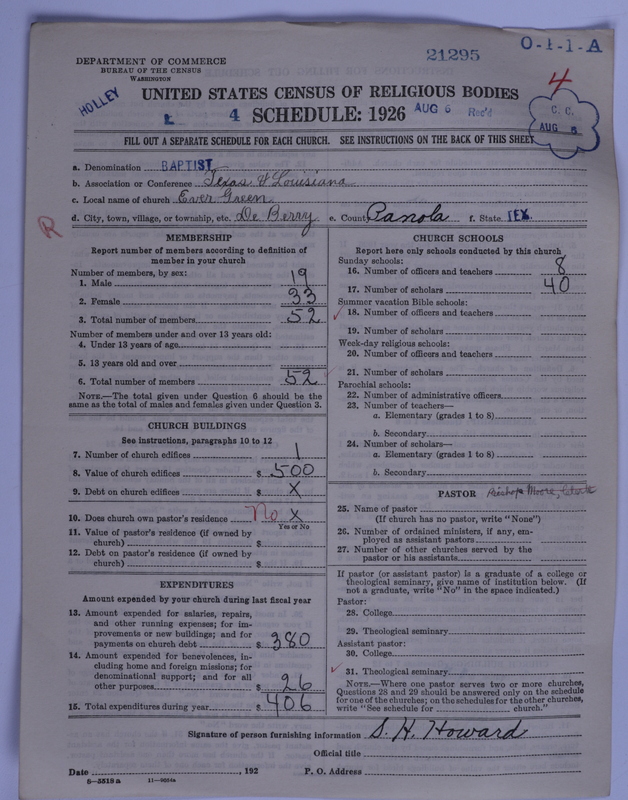 21295
O-1-1-A
DEPARTMENT OF COMMERCE
BUREAU OF THE CENSUS
WASHINGTON
4
HOLLEY
UNITED STATES CENSUS OF RELIGIOUS BODIES
4 SCHEDULE: 1926 AUG 6 Rec'd
C. C.
AUG 6
FILL OUT A SEPARATE SCHEDULE FOR EACH CHURCH. SEE INSTRUCTIONS ON THE BACK OF THIS SHEET
a. Denomination BAPTIST
b. Association or Conference Texas & Louisiana
c. Local name of church Ever Green
d. City, town, village, or township, etc. De Berry e. County Panola f. State. TEX.
R
MEMBERSHIP
Report number of members according to definition of
member in your church
Number of members, by sex:
1. Male 19
2. Female 33
3. Total number of members 52
Number of members under and over 13 years old:
4. Under 13 years of age
5. 13 years old and over
6. Total number of members 52
NOTE.—The total given under Question 6 should be the
same as the total of males and females given under Question 3.
CHURCH BUILDINGS
See instructions, paragraphs 10 to 12
7. Number of church edifices 1
8. Value of church edifices $ 500
9. Debt on church edifices $ X
10. Does church own pastor's residence No X
Yes or No
11. Value of pastor's residence (if owned by
church) $
12. Debt on pastor's residence (if owned by
church) $
EXPENDITURES
Amount expended by your church during last fiscal year
13. Amount expended for salaries, repairs,
and other running expenses; for im-
provements or new buildings; and for
payments on church debt $ 380
14. Amount expended for benevolences, in-
cluding home and foreign missions; for
denominational support; and for all
other purposes $ 26
15. Total expenditures during year $ 406
CHURCH SCHOOLS
Report here only schools conducted by this church
Sunday schools:
16. Number of officers and teachers 8
17. Number of scholars 40
Summer vacation Bible schools:
18. Number of officers and teachers
19. Number of scholars
Week-day religious schools:
20. Number of officers and teachers
21. Number of scholars
Parochial schools:
22. Number of administrative officers
23. Number of teachers—
a. Elementary (grades 1 to 8)
b. Secondary
24. Number of scholars—
a. Elementary (grades 1 to 8)
b. Secondary
PASTOR Moore,
25. Name of pastor
(If church has no pastor, write "None")
26. Number of ordained ministers, if any, em-
ployed as assistant pastors
27. Number of other churches served by the
pastor or his assistants
If pastor (or assistant pastor) is a graduate of a college or
theological seminary, give name of institution below. (If
not a graduate, write "No" in the space indicated.)
Pastor:
28. College
29. Theological seminary
Assistant pastor:
30. College
31. Theological seminary
NOTE.—Where one pastor serves two or more churches,
Questions 28 and 29 should be answered only on the schedule
for one of the churches; on the schedules for the other churches,
write "See schedule for church."
Signature of person furnishing information S. H. Howard
Official title
Date , 192 P. O. Address
5-5519 a 11-9094a